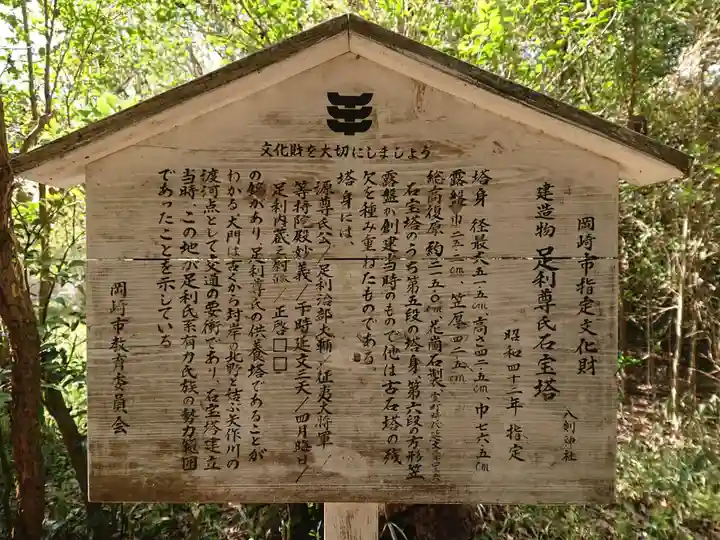 文化財を大切にしましょう
岡崎市指定文化財
建造物 足利尊氏石宝塔 八剣神社
昭和四十二年 指定
塔身 径最大五一・五㎝、高さ四二・五㎝、巾七六・五㎝
露盤 巾二五・二㎝、笠厚四二・五㎝
総高復原 約二一五・〇㎝、花崗石製
石宝塔のうち第五段の塔身、第六段方形笠
露盤が創建当時のもので他は古石塔の残
欠を積み重ねたものである。
塔身には、
源尊氏公/足利治部大輔/征夷大将軍/
等持院殿妙義/于時延文三天/四月晦日/
足利内蔵之尉
の銘があり、足利尊氏の供養塔であることが
わかる。大門は古くから対岸の北野と結ぶ矢作川の
渡河点として交通の要衝であり、石宝塔建立
当時、この地が足利氏系有力氏族の勢力範囲
であったことを示している。
岡崎市教育委員会